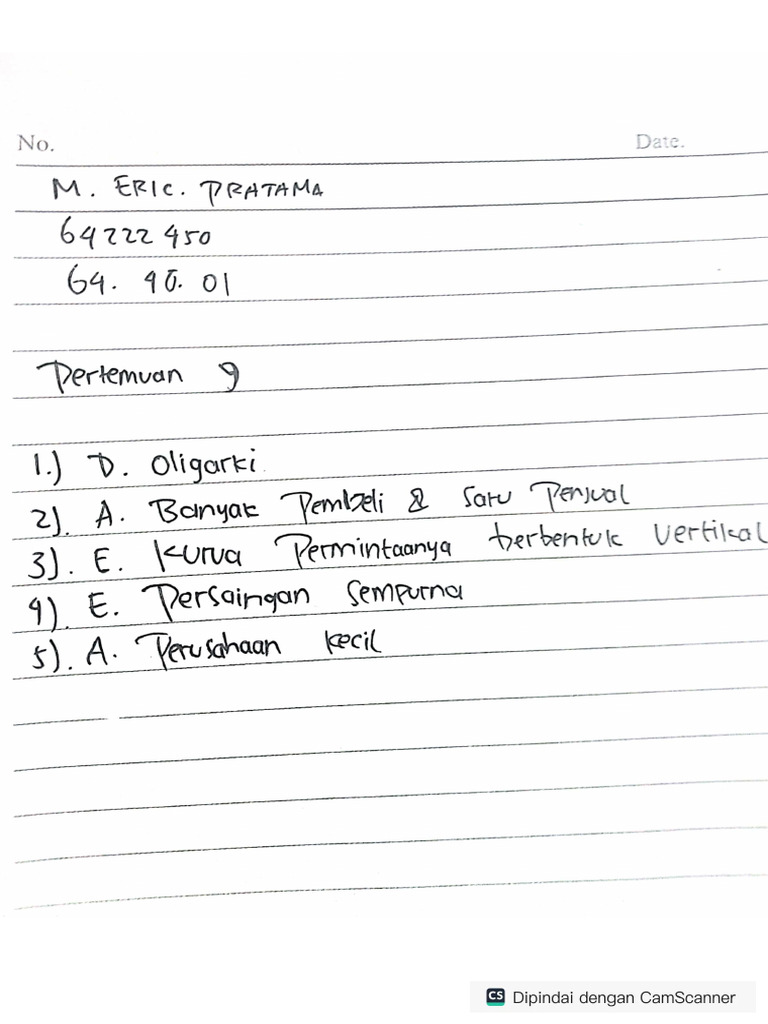 No.
Date.
M. ERIC. PRATAMA
64222450
64. 4B. 01
Pertemuan 9
1.) D. Oligarki
2). A. Banyak Pembeli & Satu Penjual
3). E. Kurva Permintaanya berbentuk Vertikal
4). E. Persaingan Sempurna
5). A. Perusahaan kecil
CS Dipindai dengan CamScanner